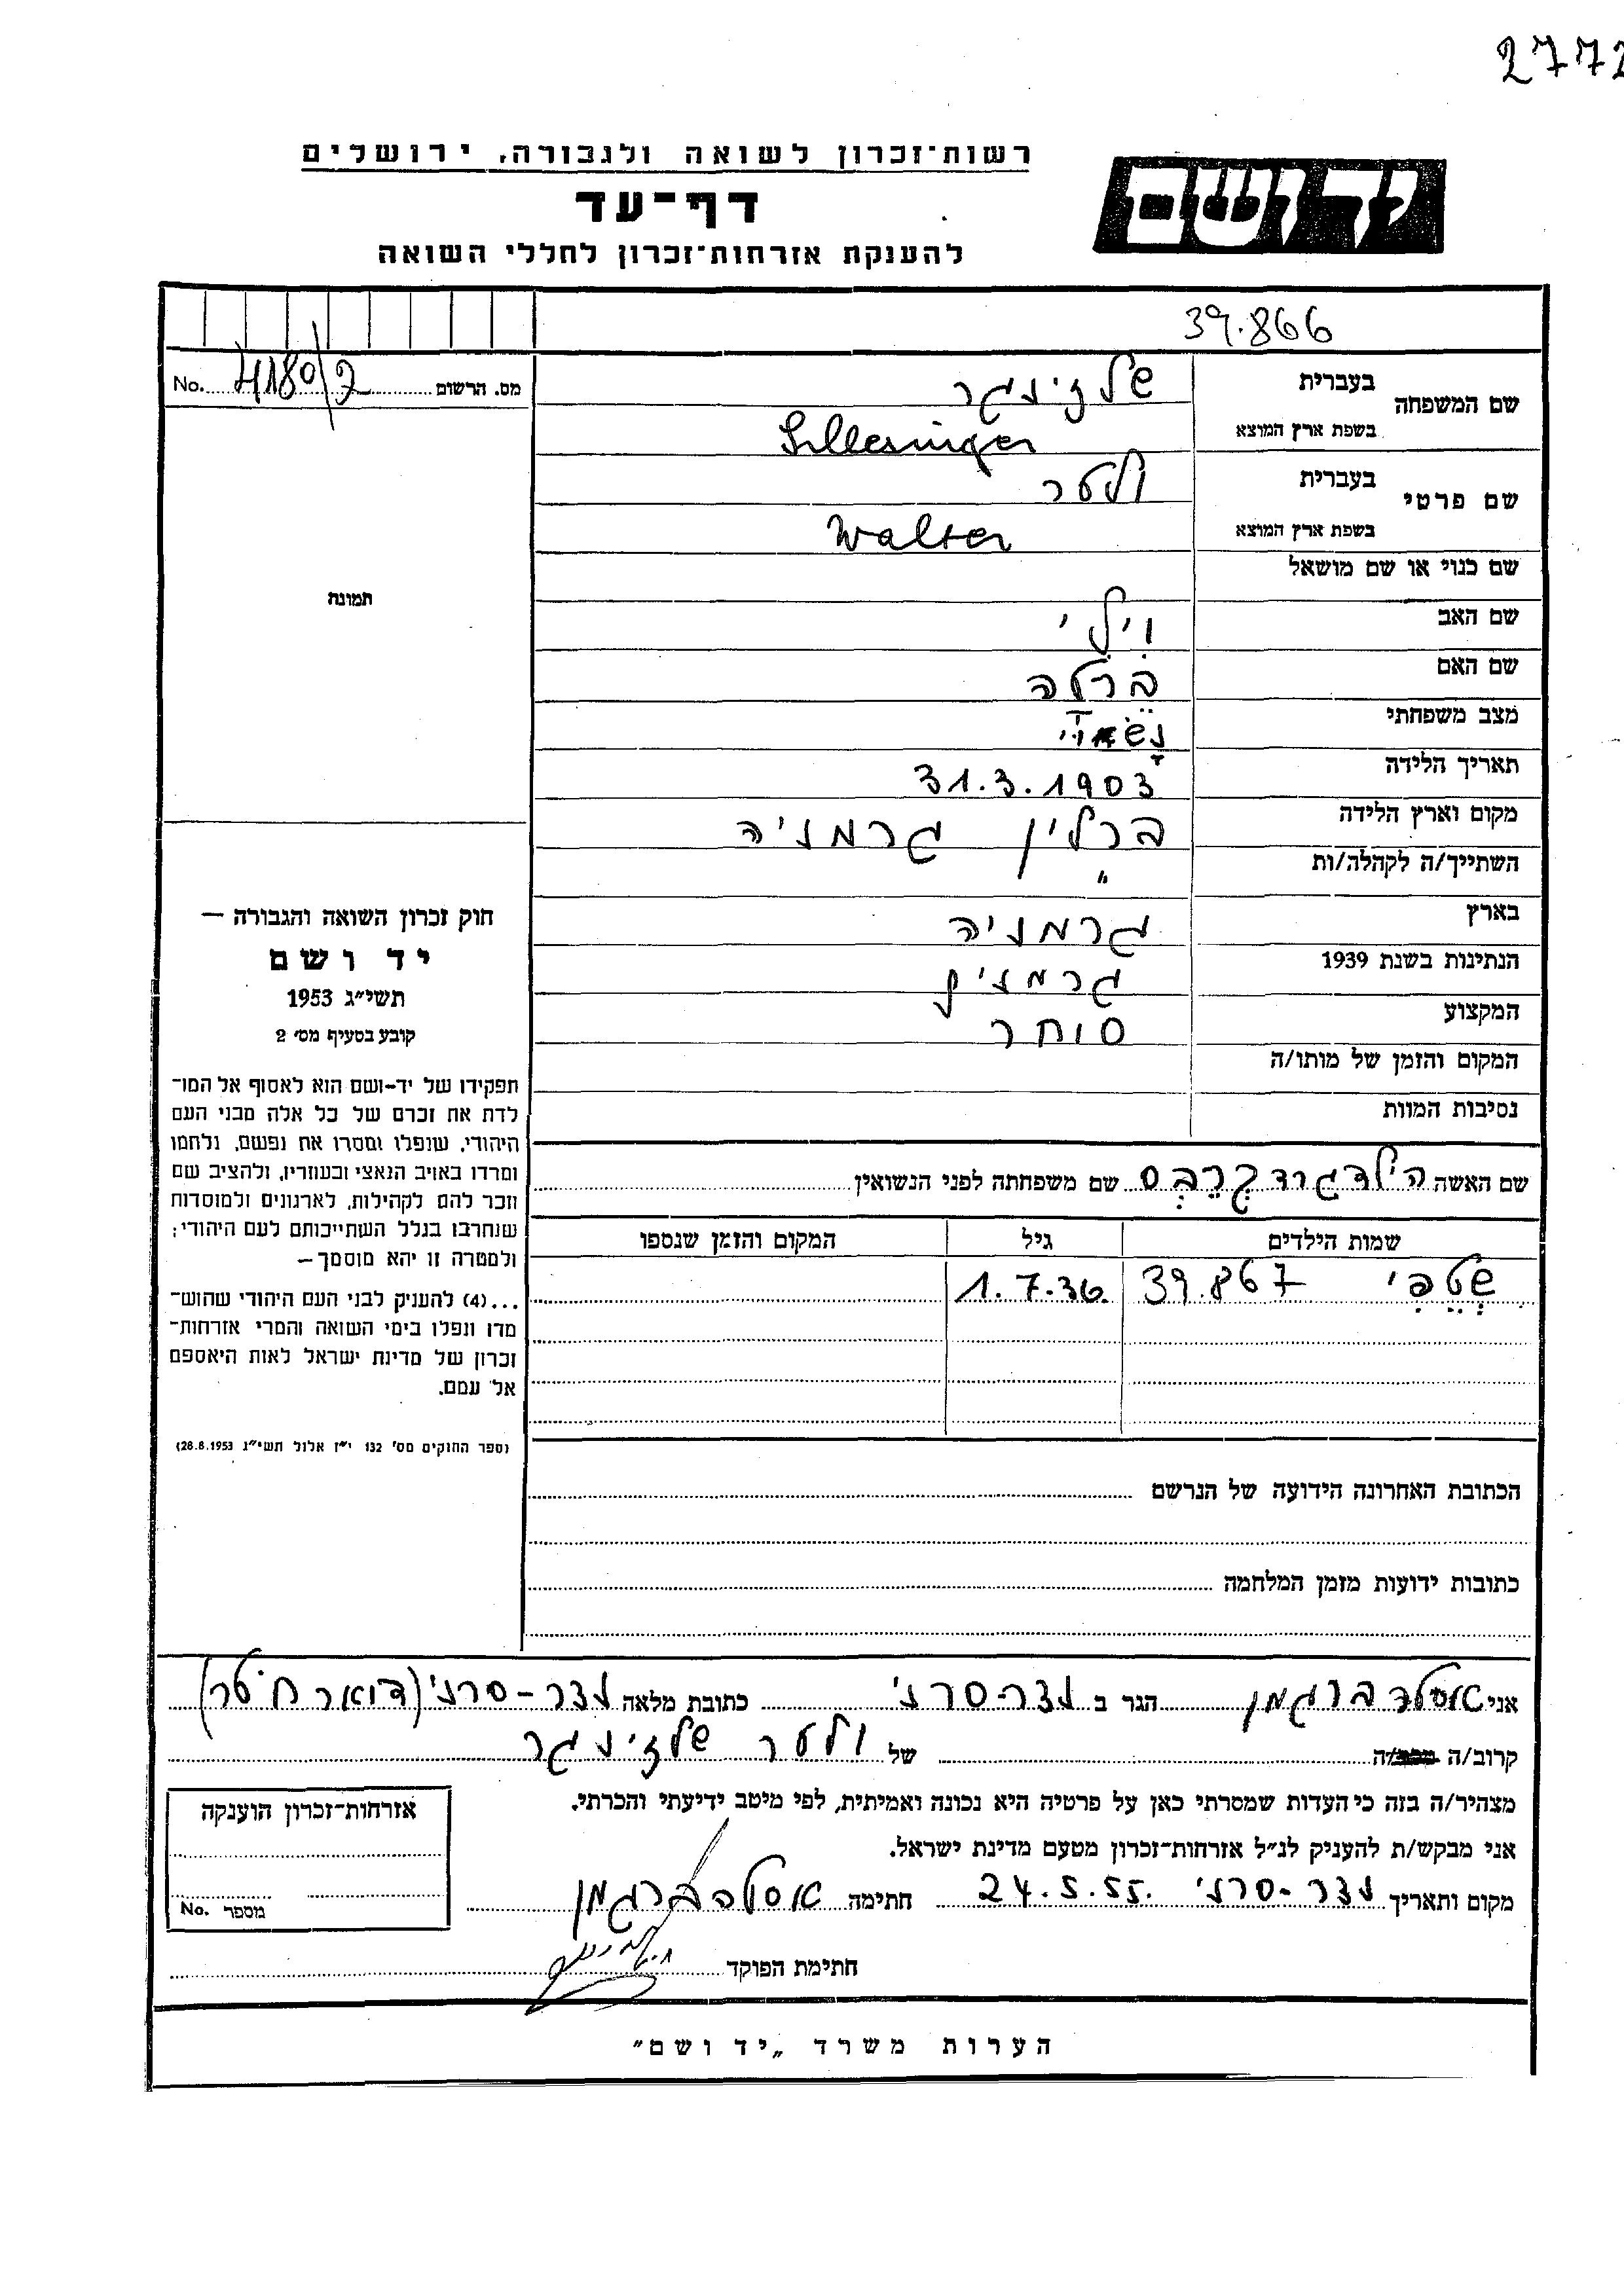 2772
רשות־זכרון לשואה ולגבורה, ירושלים
דף־עד
להענקת אזרחות־זכרון לחללי השואה
יד ושם
39.866
מס. הרשום 4180/7 No.
שם המשפחה
בעברית שלזינגר
בשפת ארץ המוצא Schlesinger
שם פרטי
בעברית ולטר
בשפת ארץ המוצא Walter
שם כנוי או שם מושאל
שם האב וילי
שם האם
מצב משפחתי
תאריך הלידה 31.3.1903
מקום וארץ הלידה ברלין גרמניה
השתייך/ה לקהלה/ות "
בארץ גרמניה
הנתינות בשנת 1939 גרמנית
המקצוע סוחר
המקום והזמן של מותו/ה
נסיבות המוות
תמונה
חוק זכרון השואה והגבורה —
יד ושם
תשי״ג 1953
קובע בסעיף מס׳ 2
תפקידו של יד-ושם הוא לאסוף אל המו־
לדת את זכרם של כל אלה מבני העם
היהודי, שנפלו ומסרו את נפשם, נלחמו
ומרדו באויב הנאצי ובעוזריו, ולהציב שם
וזכר להם לקהילות, לארגונים ולמוסדות
שנחרבו בגלל השתייכותם לעם היהודי;
ולמטרה זו יהא מוסמך —
...(4) להעניק לבני העם היהודי שהוש־
מדו ונפלו בימי השואה והמרי אזרחות־
זכרון של מדינת ישראל לאות היאספם
אל עמם.
(ספר החוקים מס׳ 132 י״ז אלול תשי״ג 28.8.1953)
שם האשה הילדגרד שם משפחתה לפני הנשואין
שמות הילדים גיל המקום והזמן שנספו
39.867 1.7.36
הכתובת האחרונה הידועה של הנרשם
כתובות ידועות מזמן המלחמה
אני ברגמן הגר ב נצר-סרני כתובת מלאה נצר-סרני (דואר
קרוב/ה של ולטר שלזינגר
מצהיר/ה בזה כי העדות שמסרתי כאן על פרטיה היא נכונה ואמיתית, לפי מיטב ידיעתי והכרתי.
אני מבקש/ת להעניק לנ״ל אזרחות־זכרון מטעם מדינת ישראל.
מקום ותאריך נצר-סרני 24.5.55. חתימה ברגמן
חתימת הפוקד
אזרחות־זכרון הוענקה
מספר No.
הערות משרד „יד ושם"